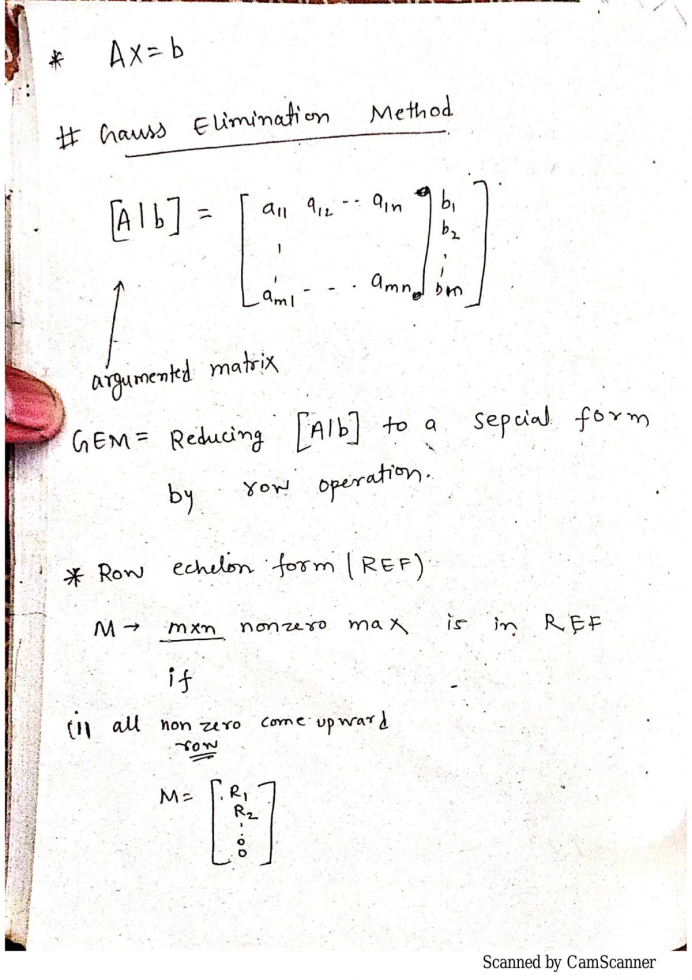 * Ax = b
# Gauss Elimination Method
[A|b] = [ a11 a12 -- a1n | b1
b2
am1 - - . amn | bm ]
argumented matrix
GEM = Reducing [A|b] to a sepcial form
by row operation.
* Row echelon form (REF)
M → mxn nonzero max is in REF
if
(i) all non zero come upward
row
M = [ R1
R2
0
0 ]
Scanned by CamScanner